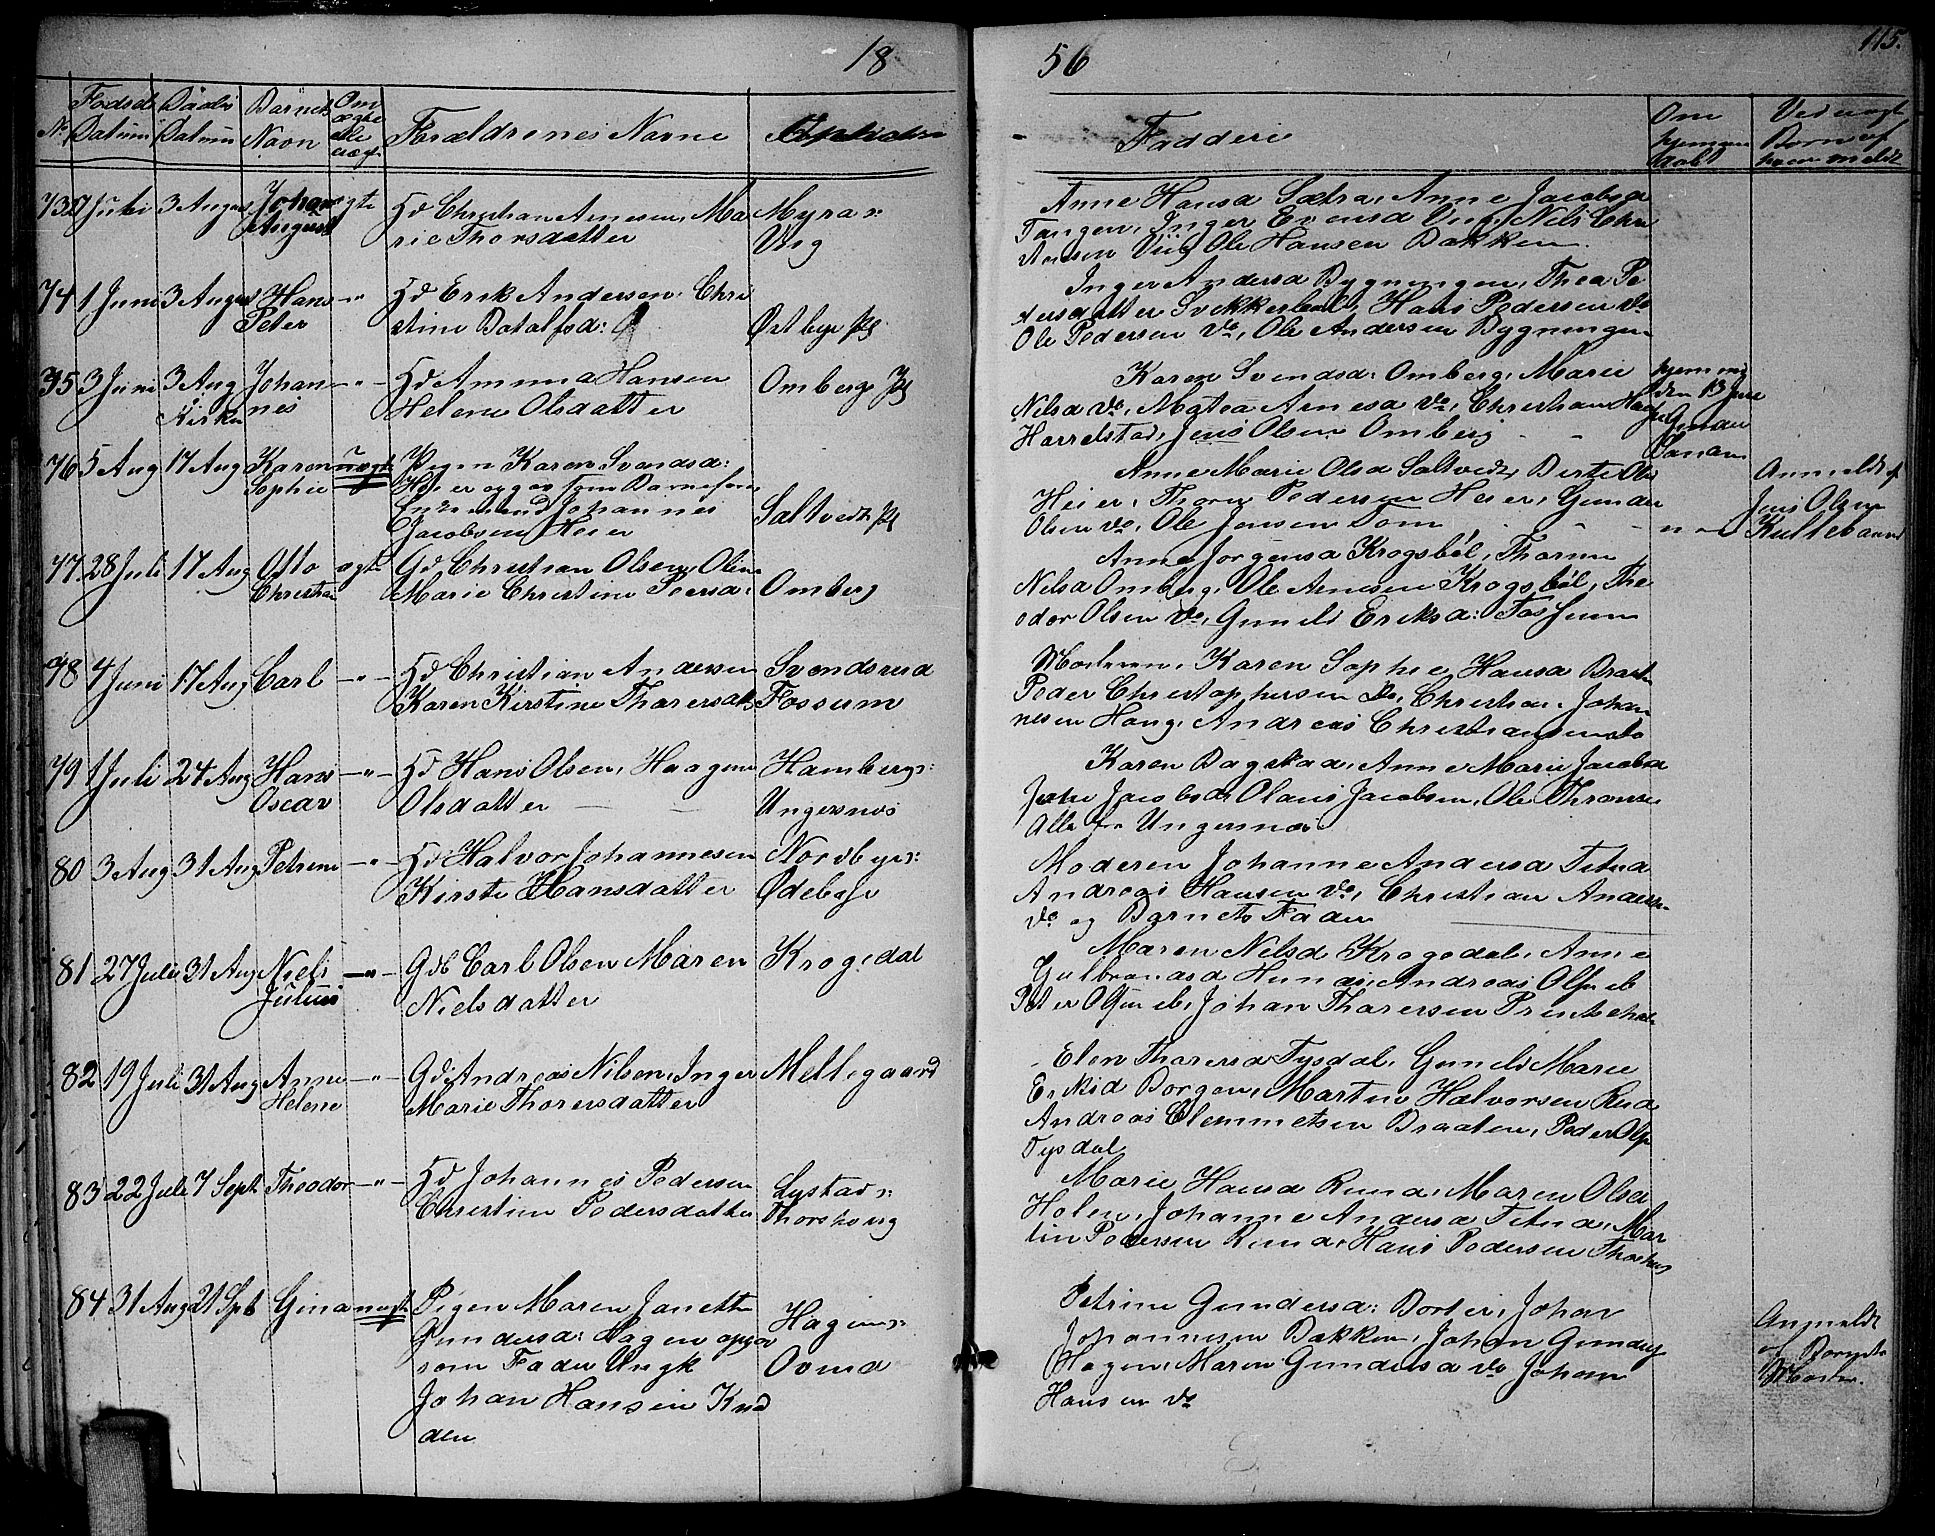 18
56
115.
No
Fødsels
Datum
Daabs
Datum
Barnets
Navn
Om
ægte
eller
uægt
Forældrenes Navne
Opholds
Faddere
Om
hjemme
døbt
Ved uægte
Børn af
hvem meldt
73 Juli 3 August Johan August ægte Hd Christian Arnesen, Ma
rie Thorsdatter
Myra
Viig
Anne Hansd Sætra, Anne Jacobsd
Tangen, Inger Evensd Viig, Nils Chri
stensen Viig, Ole Hansen Bakken
74 1 Juni 3 August Hans Peter -"- Hd Erik Andersen, Chri
stine Botolfsd:
Østbye Pl
Inger Andersd Bygningen, Thea Pe
dersdatter Svekkerbøl, Hans Pedersen do
Ole Pedersen do, Ole Andersen Bygningen
75 3 Juni 3 Aug Kirken Johan
nes -"- Hd Ammund Hansen
Helene Olsdatter
Omberg Pl
Karen Svendsd: Omberg, Marie
Nilsd do, Mathea Arnesd do, Christian Haagens
Harrelstad, Jens Olsen Omberg
hjemme
den 13 Juni
af Gunder
76 5 Aug 17 Aug Karen Sophie uægte Pigen Karen Svendsd:
Hd er opgov som Barnefader
Enkemand Johannes
Jacobsen Heier
Saltvedt Pl
Anne Marie Olsd Saltvedt, Berte Olsd
Heier, Thorer Pedersen Heier, Gunder
Olsen do, Ole Jensen Tom
Anmeldt af
Jens Olsen
Kultebaand
77 28 Juli 17 Aug Otto Christian ægt Gd Christian Olsen, Oline
Marie Christine Peersd:
Omberg
Anne Jorgensd Krogsbøl, Thorine
Nilsd Omberg, Ole Arnesen Krogsbøl, The
odor Olsen do, Gunild Eriksd: Fossum
78 4 Juni 17 Aug Carl -"- Hd Christian Andersen
Karen Kirstine Thorersdatt
Svendsrud
Fossum
Moderen, Karen Sophie Hansd Braaten
Peder Christophersen do, Christian Johan
nesen Haug, Andreas Christiansen do
79 1 Juli 24 Aug Hans Oscar -"- Hd Hans Olsen, Haagine
Olsdatter
Hambergs:
Ungersnes
Karen Dagstad, Anne Marie Jacobsd
Jacobsd Olaus Jacobsen, Ole Thronsen
Alle fra Ungersnæs
80 3 Aug 31 Aug Petrine -"- Hd Halvor Johannesen
Kirsti Hansdatter
Nordbyes:
Ødebasje
Moderen Johanne Andersd Tetud
Andreas Hansen do, Christian Andersen
do og Barnets Fader
81 27 Juli 31 Aug Niels Julius -"- Gdb Carl Olsen Maren
Nielsdatter
Krogedal
Maren Nilsd Krogedal, Anne
Gulbrandsd Hundss, Andreas Olsen ib
Peter Olsen ib, Johan Thorersen Prestehol
82 19 Juli 31 Aug Anne Helene -"- Gd Andreas Nilsen, Inger
Marie Thorersdatter
Mellegaard
Elen Thorersd Tysdal, Gunild Marie
Eriksd Borgen, Martin Halvorsen Rud
Andreas Clemmetsen Braaten, Peder Ols
Tysdal
83 22 Juli 7 Sept Theodor -"- Hd Johannes Pedersen
Christine Pedersdatter
Lystad:
Thorshoug
Marie Hansd Rund, Maren Olsd
Holen, Johanne Andersd Tetud, Mar
tin Pedersen Rund, Hans Pedersen Thorshug
84 31 Aug 21 Spt Gina uægt Pigen Maren Janette
Gundersd: Hagen opgav
som Fader Ungk
Johan Hansen Knud
den
Hagens:
Ovind
Petrine Gundersd: Borter, Johan
Johannesen Bakken, Johan Gunders
Hagen, Maren Gundersd do Johan
Hansen do
Anmeldt
af Barnets
Moder.